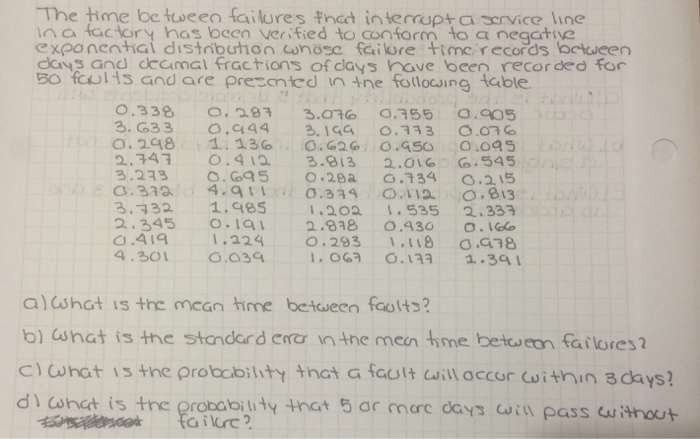 The time between failures that interrupt a service line
in a factory has been verified to conform to a negative
exponential distribution whose failure time records between
days and decimal fractions of days have been recorded for
50 faults and are presented in the following table
0.338 0.287 3.076 0.755 0.905
3.633 0.944 3.199 0.773 0.076
0.298 1.136 0.626 0.950 0.095
2.747 0.412 3.813 2.016 6.545
3.273 0.695 0.282 0.734 0.215
0.372 4.911 0.379 0.112 0.813
3.732 1.985 1.202 1.535 2.337
2.345 0.191 2.878 0.930 0.166
0.419 1.224 0.293 1.118 0.978
4.301 0.039 1.067 0.177 1.391
a) What is the mean time between faults?
b) What is the standard error in the mean time between failures?
c) What is the probability that a fault will occur within 3 days?
d) What is the probability that 5 or more days will pass without
failure?